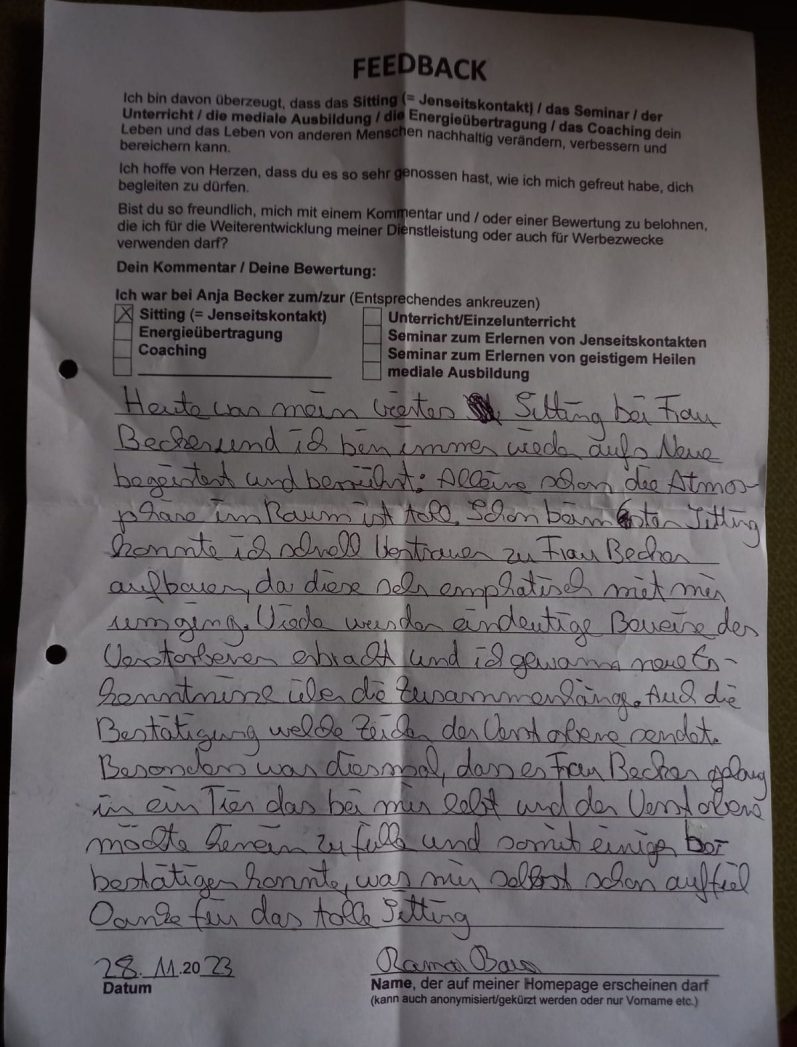 FEEDBACK
Ich bin davon überzeugt, dass das Sitting (= Jenseitskontakt) / das Seminar / der
Unterricht / die mediale Ausbildung / die Energieübertragung / das Coaching dein
Leben und das Leben von anderen Menschen nachhaltig verändern, verbessern und
bereichern kann.
Ich hoffe von Herzen, dass du es so sehr genossen hast, wie ich mich gefreut habe, dich
begleiten zu dürfen.
Bist du so freundlich, mich mit einem Kommentar und / oder einer Bewertung zu belohnen,
die ich für die Weiterentwicklung meiner Dienstleistung oder auch für Werbezwecke
verwenden darf?
Dein Kommentar / Deine Bewertung:
Ich war bei Anja Becker zum/zur (Entsprechendes ankreuzen)
X Sitting (= Jenseitskontakt) Unterricht/Einzelunterricht
Energieübertragung Seminar zum Erlernen von Jenseitskontakten
Coaching Seminar zum Erlernen von geistigem Heilen
mediale Ausbildung
Heute was mein viertes Sitting bei Frau
Becker und ich bin immer wieder aufs Neue
begeistert und berührt. Alleine schon die Atmos-
phäre im Raum ist toll. Schon beim ersten Sitting
konnte ich schnell Vertrauen zu Frau Becker
aufbauen, da diese sehr emphatisch mit mir
umging. Wieder wurden eindeutige Beweise der
Verstorbenen erbracht und ich gewann neue Er-
kenntnisse über die Zusammenhänge. Auch die
Bestätigung welche Zeichen der Verstorbene sendet.
Besonders war diesmal, dass es Frau Becker gelang
in ein Tier das bei mir lebt und der Verstorbene
möchte hinein zu fühle und somit einiges
bestätigen konnte, was mir selbst schon auffiel
Danke für das tolle Sitting
28.11.2023
Datum Name, der auf meiner Homepage erscheinen darf
(kann auch anonymisiert/gekürzt werden oder nur Vorname etc.)